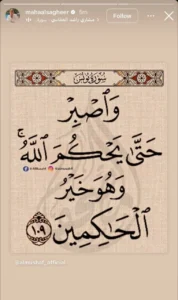 mahsatsagheer 5m
Follow
سُورَةُ يُونُسَ
وَٱصۡبِرۡ
حَتَّىٰ يَحۡكُمَ ٱللَّهُۚ
وَهُوَ خَيۡرُ
ٱلۡحَٰكِمِينَ ١٠٩